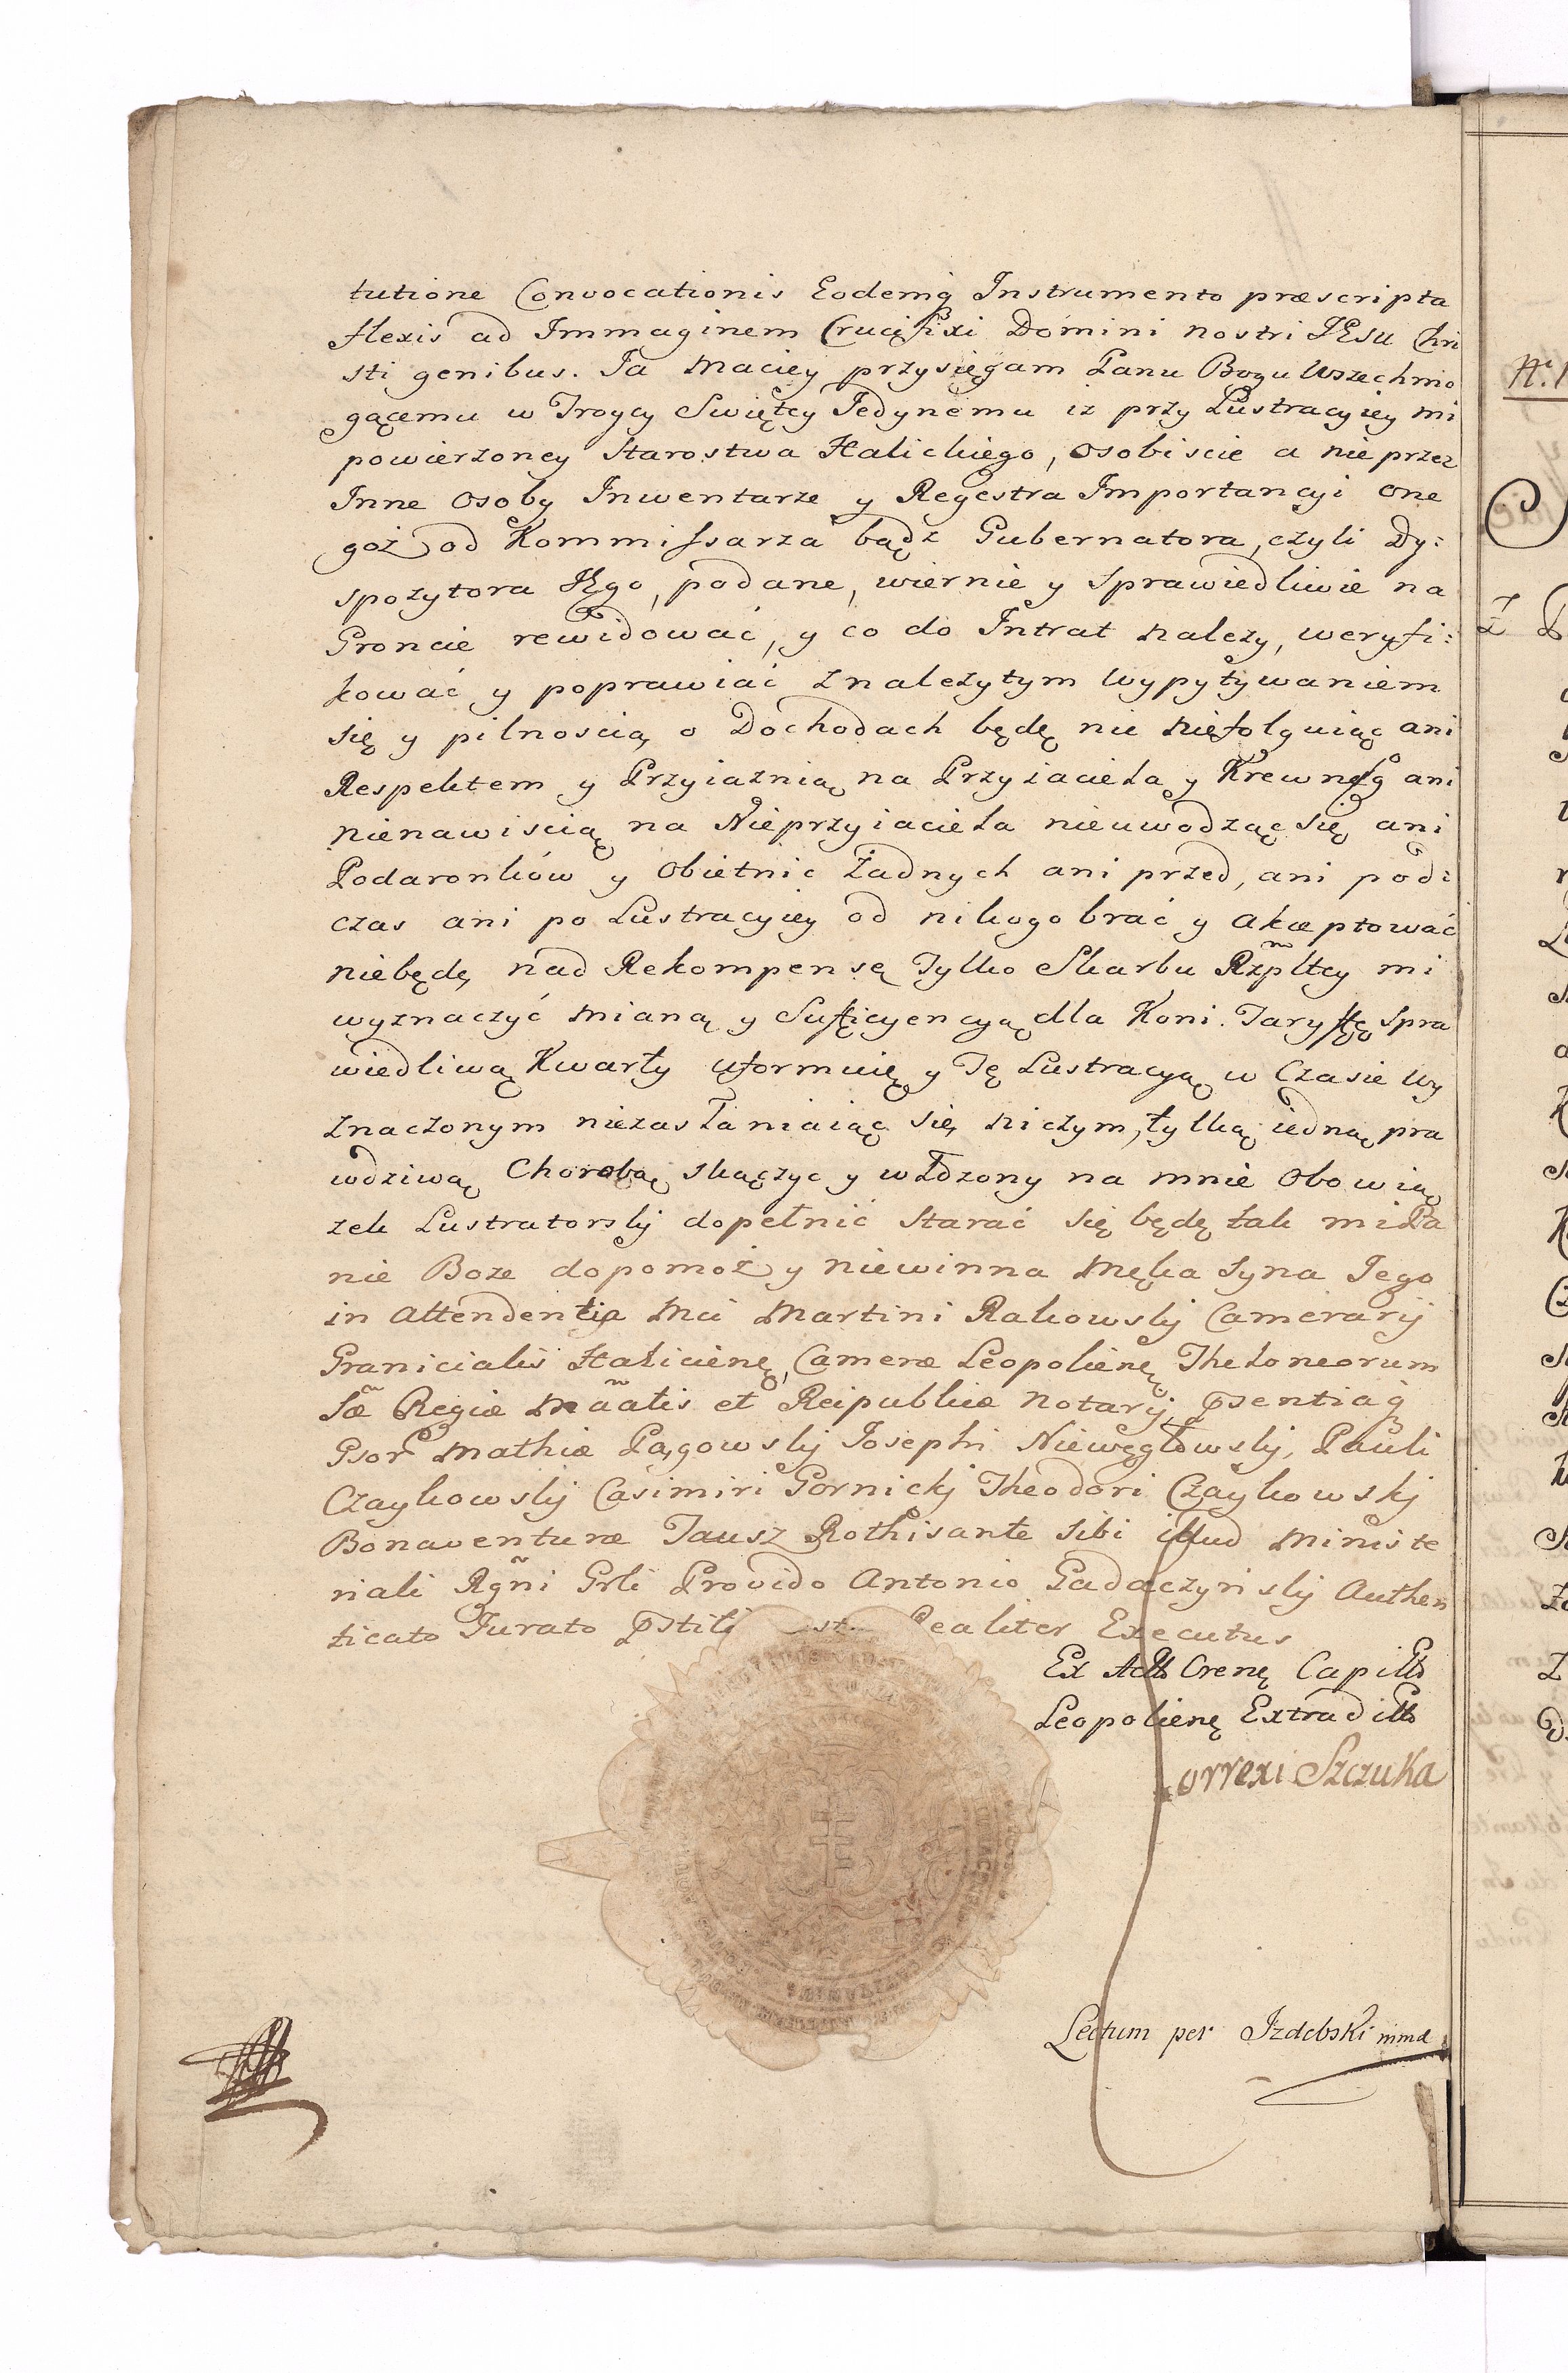 tutione Convocationis Eodemq̃ Instrumento præscripta
flexis ad Immaginem Crucifixi Domini nostri JESU Chri
sti genibus. Ja Maciey przysięgam Panu Bogu Wszechmo
gącemu w Troycy Swiętey Jedynemu iz przy Lustracyiey mi
powierzoney Starostwa Halickiego, osobiscie a nie przez
Inne Osoby Inwentarze y Regestra Importancyi one
goż od Kommissarza bądz Gubernatora, czyli Dy:
spozytora Jego, podane, wiernie y sprawiedliwie na
Groncie rewidować, y co do Intrat nalezy, weryfi:
kować y poprawiać z nalezytym wypytywaniem
się y pilnoscią o Dochodach będę nie niefolguiąc ani
Respektem y Przyiaznią na Przyiaciela y Krewnego ani
nienawiscią na Nieprzyiaciela nieuwodząc się ani
Podaronków y Obietnic Żadnych ani przed, ani pod:
czas ani po Lustracyiey od nikogo brać y akceptować
niebędę, nad Rekompensę Tylko Skarbu Rzpltey mi
wyznaczyć mianą y Suficyencyą dla Koni. Taryffę spra
wiedliwą Kwarty uformuię y Tę Lustracyą w Czasie wy
znaczonym niezasłaniaiąc się niczym, tylką iedną pra
wdziwą Chorobą skączyc y włdzony na mnie Obowią
zek Lustratorskj dopełnić starać się będę tak mi Pa
nie Boze dopomoż y niewinna Męka Syna Jego
in attendentia Mci Martini Rakowskj Camerarij
Granicialis Halicienę, Cameræ Leopolienę Theloneorum
Sæ Regiæ Maatis et Reipublicæ Notarij, pſentiaq̃
Gsor Mathiæ Pągowskj Josephi Niewęgłowskj, Pauli
Czaykowskj Casimiri Gornickj Theodori Czaykowskj
Bonaventuræ Jausz Rothisante sibi illud Ministe
riali Rgñi Grli Provido Antonio Gadaczynskj Authen
ticato Jurato Realiter Executus
Ex Actis Crenę Capitt
Leopolienę Extraditt
Correxi Szczuka
Lectum per Izdebski mmd